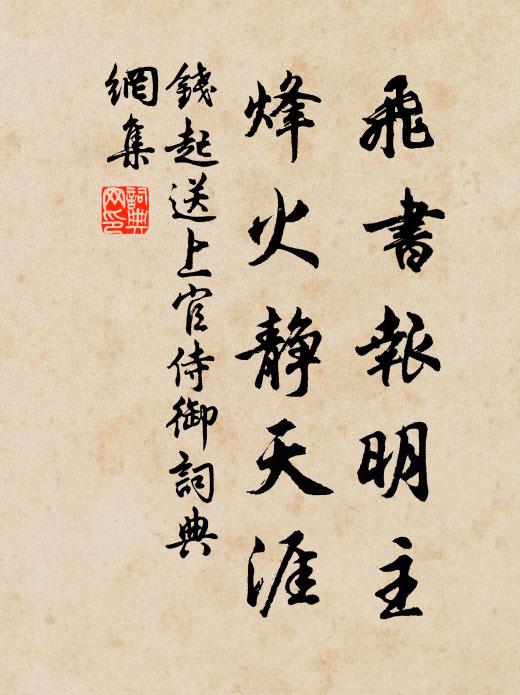 飛書報明主
烽火静天涯
錢起送上官侍御詞典
網集
詞典網印